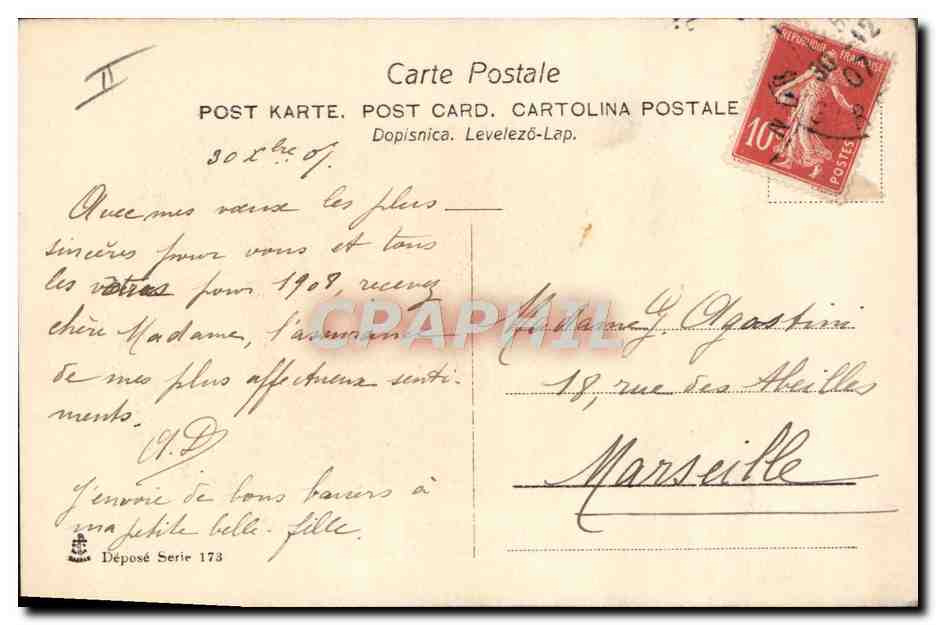 II
Carte Postale
POST KARTE. POST CARD. CARTOLINA POSTALE
Dopisnica. Levelező-Lap.
REPUBLIQUE FRANÇAISE
10
POSTES
30
07
30 Xbre 07.
Avec mes vœux les plus
sincères pour vous et tous
les vôtres pour 1908, recevez
chère Madame, l'assurance
de mes plus affectueux senti-
ments.
A.D
J'envoie de bons baisers à
ma petite belle-fille.
Déposé Serie 173
Madame G. Agostini
18, rue des Abeilles
Marseille
CPAPHIL